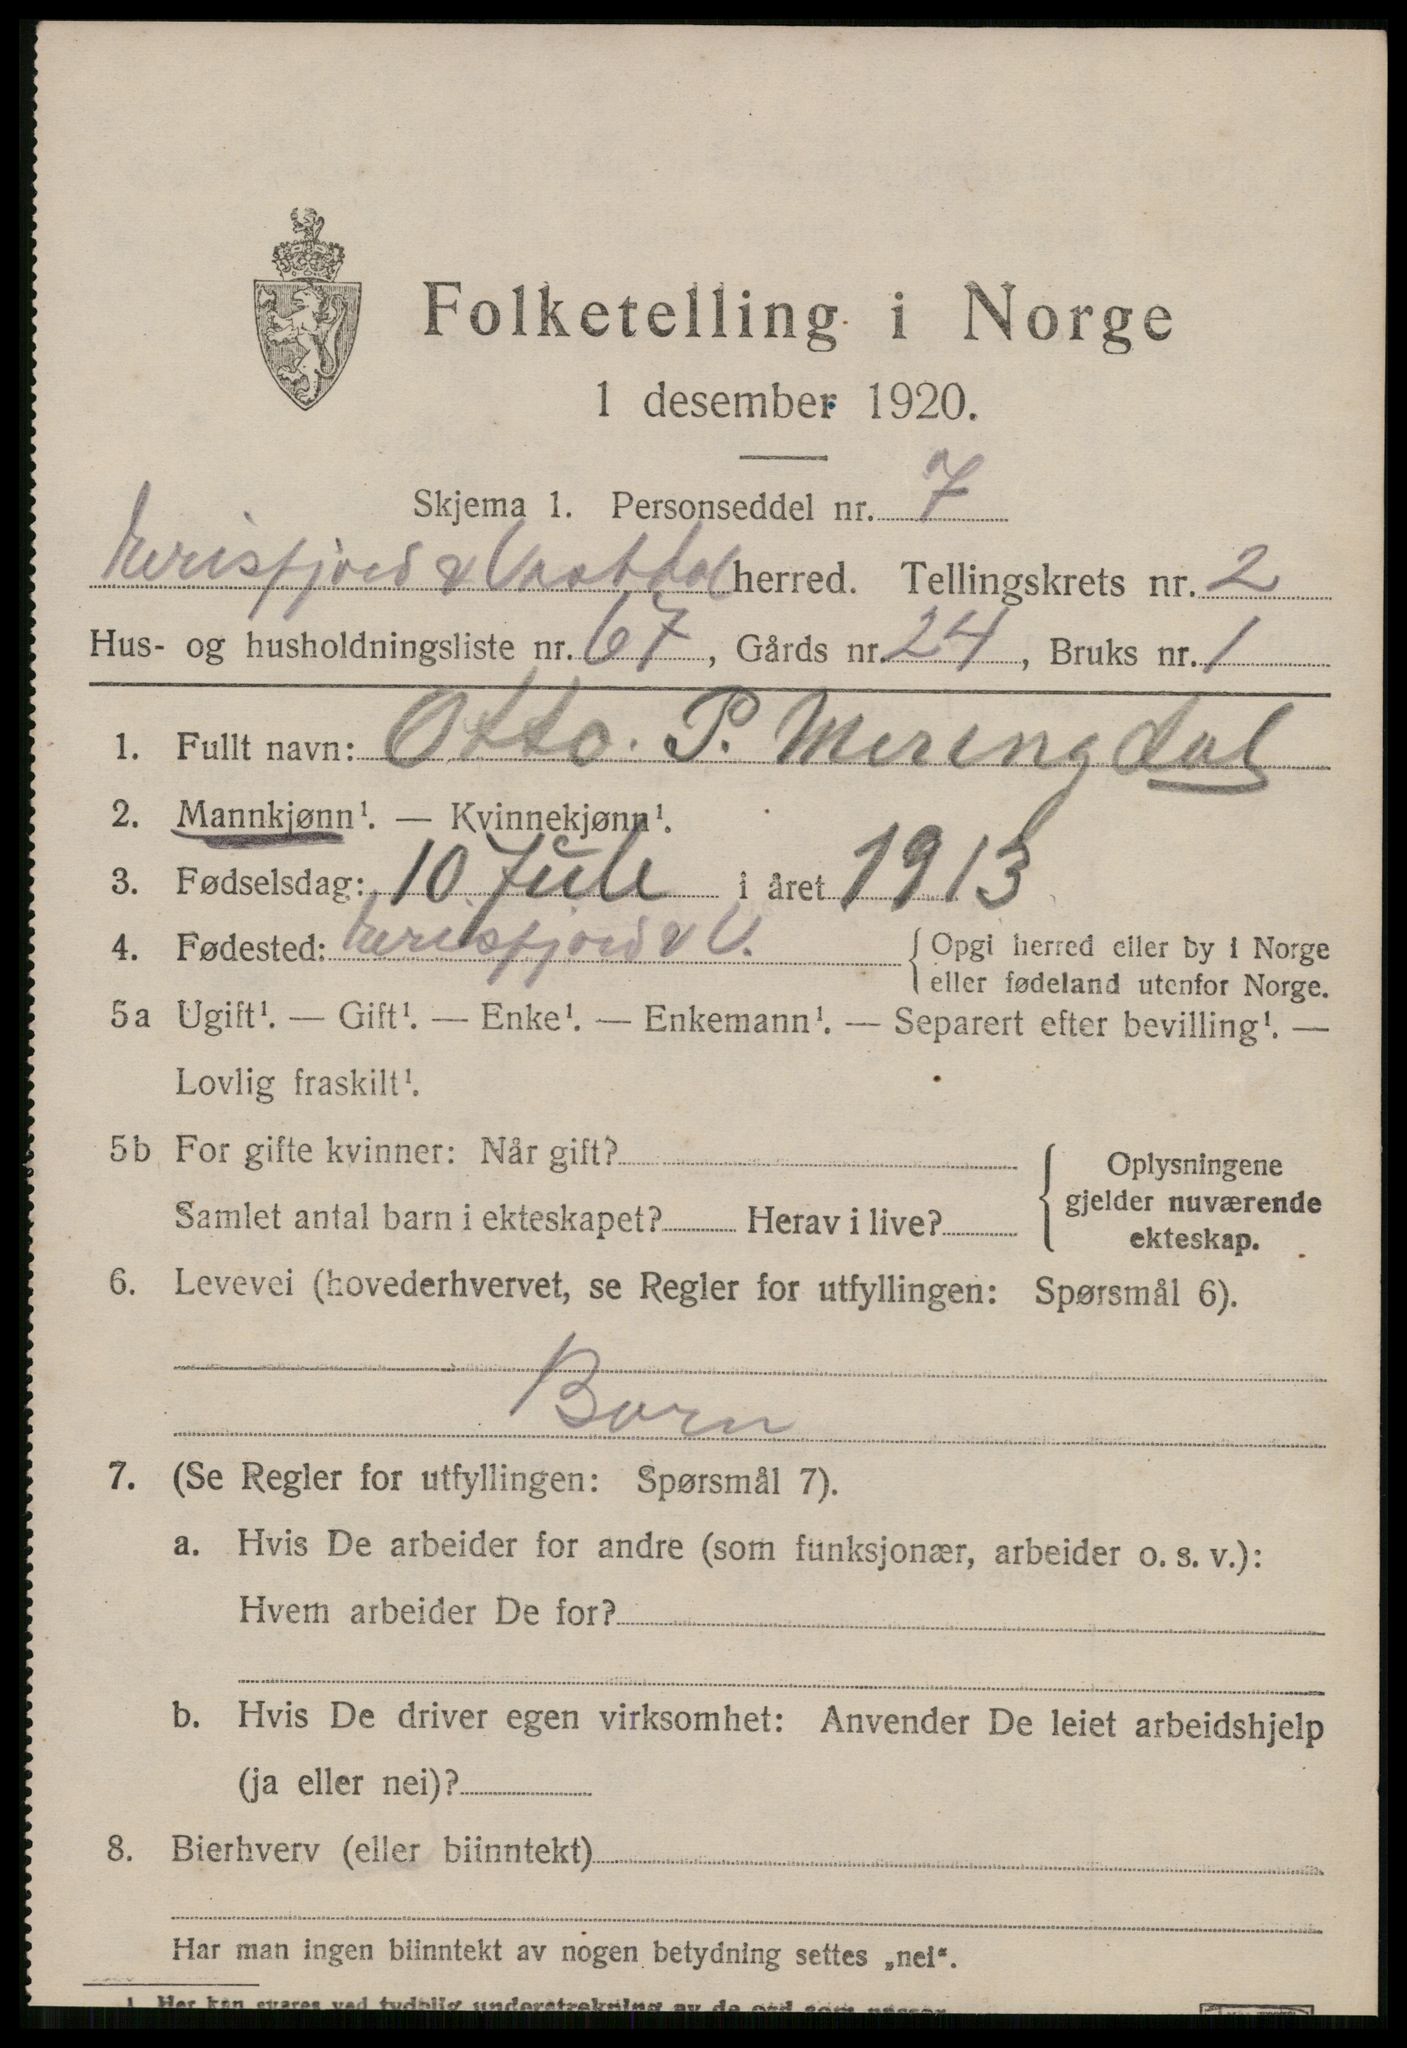 Folketelling i Norge
1 desember 1920.
Skjema 1. Personseddel nr. 7
Eresfjord & Vistdal herred. Tellingskrets nr. 2
Hus- og husholdningsliste nr. 67, Gårds nr. 24, Bruks nr. 1
1. Fullt navn: Otto. P. Meringdal
2. Mannkjønn¹. — Kvinnekjønn¹.
3. Fødselsdag: 10 Juli i året 1913
4. Fødested: Eresfjord & V. Opgi herred eller by i Norge
eller fødeland utenfor Norge.
5a Ugift¹. — Gift¹. — Enke¹. — Enkemann¹. — Separert efter bevilling¹. —
Lovlig fraskilt¹.
5b For gifte kvinner: Når gift?
Samlet antal barn i ekteskapet? Herav i live?
Oplysningene
gjelder nuværende
ekteskap.
6. Levevei (hovederhvervet, se Regler for utfyllingen: Spørsmål 6).
Born
7. (Se Regler for utfyllingen: Spørsmål 7).
a. Hvis De arbeider for andre (som funksjonær, arbeider o. s. v.):
Hvem arbeider De for?
b. Hvis De driver egen virksomhet: Anvender De leiet arbeidshjelp
(ja eller nei)?
8. Bierhverv (eller biinntekt)
Har man ingen biinntekt av nogen betydning settes „nei“.
1 Her kan svares ved tydelig understrekning av de ord som passer.